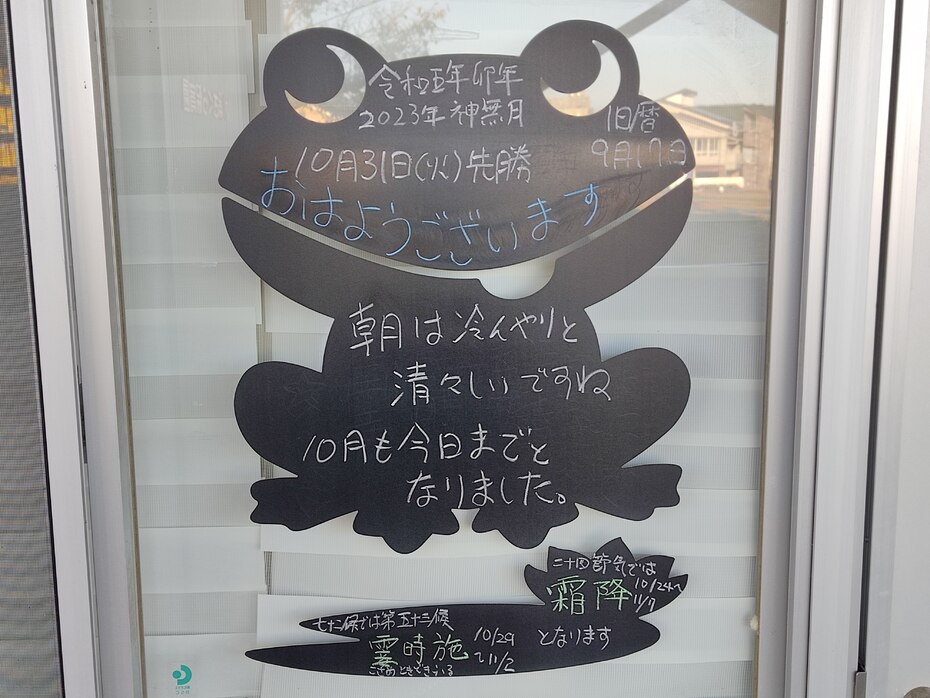 令和五年卯年
2023年神無月
旧暦
9月17日
10月31日(火)先勝
おはようございます
朝は冷んやりと
清々しいですね
10月も今日までと
なりました。
二十四節気では
霜降 10/24〜
11/7
七十二候では第五十三候
霎時施 10/29
〜11/2
こさめときどきふる
となります